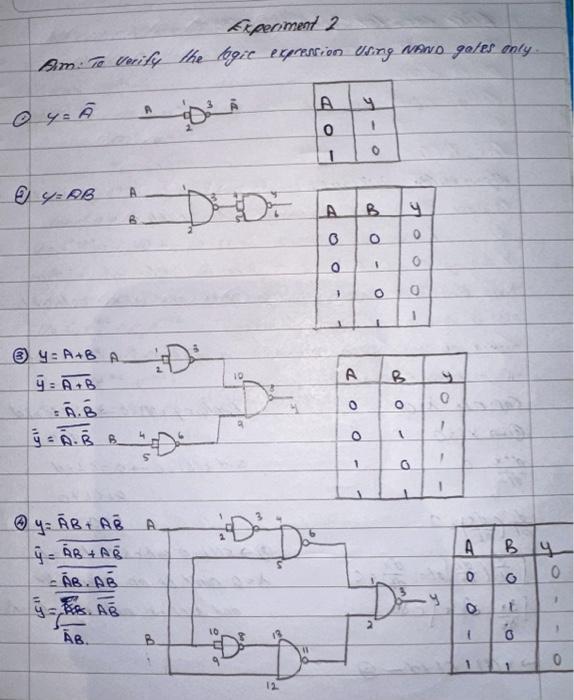 Experiment 2
Aim: To verify the logic expression using NAND gates only.
① y = A̅
A 1 2 3 A̅
A y
0 1
1 0
② y = AB
A B 1 2 3 4 5 6
A B y
0 0 0
0 1 0
1 0 0
1 1 1
③ y = A+B
y̅ = \overline{A+B}
= A̅.B̅
y̿ = \overline{A̅.B̅}
A 1 2 3
B 4 5 6
10 9 8 y
A B y
0 0 0
0 1 1
1 0 1
1 1 1
④ y = A̅B + AB̅
y̅ = \overline{A̅B + AB̅}
= \overline{A̅B} . \overline{AB̅}
y̿ =
A̅B.
A 1 2 3 4 5 6
B 10 9 8 13 12 11
1 2 3 y
A B y
0 0 0
0 1 1
1 0 1
1 1 0